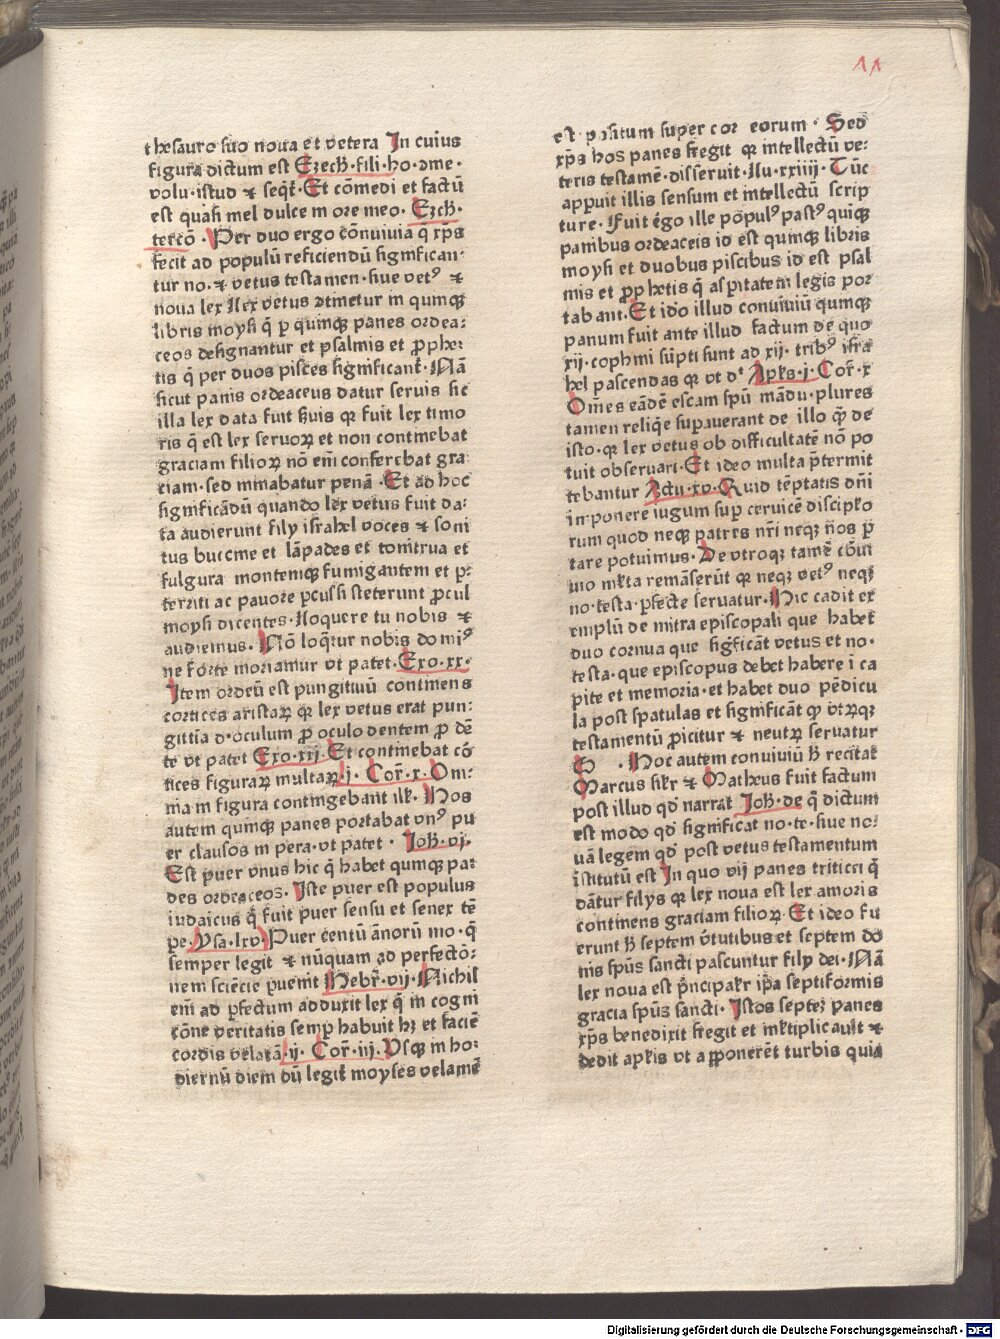 11
thesauro suo noua et vetera In cuius
figura dictum est Ezech·fili·ho·ꝯme·
volu·istud ⁊ seqͭ·Et cōmedi et factū
est quasi mel dulce in ore meo·Ezch·
tercō·Per duo ergo cōnuiuia q̄ xp̄s
fecit ad populū reficiendū significan
tur no·⁊ vetus testamen·siue vetꝰ ⁊
noua lex Nex vetus ꝯtinetur in quinqꝫ
libris moysi q̄ ꝑ quinqꝫ panes ordea⸗
ceos designantur et psalmis et ꝓphe⸗
tis q̄ per duos pisces significant̄·Nā
sicut panis ordeaceus datur seruis sic
illa lex data fuit suis qꝛ fuit lex timo
ris q̄ est lex seruoꝝ et non continebat
graciam filioꝝ nō em̄ conferebat gra
ciam·sed minabatur penā·Et ad hoc
significādū quando lex vetus fuit da⸗
ta audierunt filÿ israhel voces ⁊ soni
tus buccine et lāpades et tonitrua et
fulgura montemqꝫ fumigantem et ꝑ⸗
territi ac pauore ꝑcussi steterunt ꝓcul
moysi dicentes·Loquere tu nobis ⁊
audiemus·Nō loq̄tur nobis do miꝰ
ne forte moriamur vt patet·Exo·xx·
Item ordeū est pungitiuū continens
cortices aristaꝝ qꝛ lex vetus erat pun⸗
gitiua ꝯ·oculum ꝓ oculo dentem ꝓ dē
te vt patet Exo·xxi·Et continebat cō
tices figuraꝝ multaꝝ·i·Cor̄·x·Om⸗
nia in figura contingebant ill·Hos
autem quinqꝫ panes portabat vnꝰ pu
er clausos in pera·vt patet·Joh·vi·
Est puer vnus hic q̄ habet quinqꝫ pa⸗
des ordeaceos·Iste puer est populus
iudaicus q̄ fuit puer sensu et senex tē
pe·Ysa·lxv·Puer centū ānorū mo·q̄
semper legit ⁊ nūquam ad perfectō⸗
nem sciēcie puenit Hebr̄·vij·Nichil
em̄ ad ꝑfectum adduxit lex q̄ in cogni
cōne veritatis semꝑ habuit hꝫ et faciē
cordis velatā·ij·Cor̄·iij·Vsqꝫ in ho⸗
diernū diem dū legit̄ moyses velamē
est positum super cor eorum·Sed
xp̄s hos panes fregit qꝛ intellectū ve⸗
teris testamē·disseruit·Lu·xxiiij·Tūc
apꝑuit illis sensum et intellectū scrip
ture·Fuit ergo ille pōpulꝰ pastꝰ quinqꝫ
panibus ordeaceis id est quinqꝫ libris
moysi et duobus piscibus id est psal
mis et ꝓphetis q̄ aspitatem legis por
tabant·Et idō illud conuiuiū quinqꝫ
panum fuit ante illud factum de quo
xij·cophini sūpti sunt ad xij·tribꝰ isra
hel pascendas qꝛ vt dͭ Aplꝰs·i·Cor̄·x
Om̄es eādē escam spū mādu·plures
tamen reliqͥe supauerant de illo q̄ de
isto·qꝛ lex vetus ob difficultatē nō po
tuit obseruari·Et ideo multa p̄termit
tebantur Actu·xv·Quid tēptatis dn̄i
inponere iugum suꝑ ceruicē discipło
rum quod neqꝫ patres nr̄i neqꝫ nos ꝑ
tare potuimus·De vtroqꝫ tamē cōui
uio mł̄ta remāserūt qꝛ neqꝫ vetꝰ neqꝫ
no·testa·ꝑfecte seruatur·Hic cadit ex
emplū de mitra episcopali que habet
duo cornua que sig̅ficāt vetus et no·
testa·que episcopus debet habere ī ca
pite et memoria·et habet duo pēdicu
la post spatulas et significāt ꝙ vtrūqꝫ
testamentū ꝓicitur ⁊ neutꝝ seruatur
Hoc autem conuiuiū ħ recitat
Marcus sil̄r ⁊ Matheus fuit factum
post illud qd̄ narrat Joh·de q̄ dictum
est modo qd̄ significat no·te·siue no⸗
uā legem qd̄ post vetus testamentum
īstitutū est In quo vij panes triticei q̄
dātur filÿs qꝛ lex noua est lex amoris
continens graciam filioꝝ·Et ideo fu
erunt ħ septem v̄tutibus et septem do
nis spūs sancti pascuntur filÿ dei·Nā
lex noua est p̄ncipal̄r ip̄a septiformis
gracia spūs sancti·Istos septeꝫ panes
xp̄s benedixit fregit et ml̄tiplicauit ⁊
dedit apl̄is vt apponerēt turbis quia
Digitalisierung gefördert durch die Deutsche Forschungsgemeinschaft · DFG